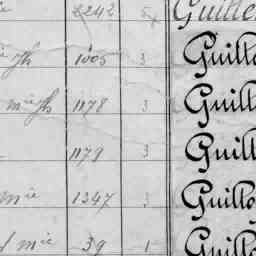 2242 5 Guille
1005 3 Guillo
1178 3 Guill
1179 3 Guill
mie 1347 3 Guillo
mie 39 1 Guillo